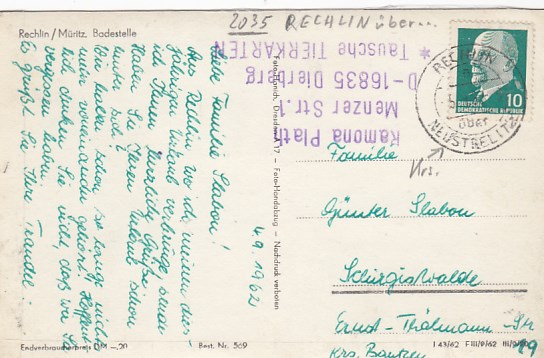 2035 RECHLIN über...
Rechlin / Müritz, Badestelle
Liebe Familie Slabon!
Aus Berlin wo ich meinen dies-
jährigen Urlaub verbringe sende
ich Ihnen herzliche Grüße.
Haben Sie Ihren Urlaub schon
hinter sich?
Wir haben schon so lange nichts
mehr voneinander gehört. Hoffent-
lich denken Sie nicht, daß wir Sie
vergessen haben.
Es grüßt Sie Ihre Traudel.
4.9.1962
Endverbraucherpreis DM —,20
Best. Nr. 569
Foto-Handabzug - Nachdruck verboten
Ramona Plath
Menzer Str. 1
D-16835 Dierberg
* Tausche TIERKARTEN
DEUTSCHE
DEMOKRATISCHE
REPUBLIK
10
RECHLIN
über
NEUSTRELITZ
Krs.
Familie
Günter Slabon
Schirgiswalde
Ernst-Thälmann-Str
49
Krs. Bautzen
I 43/62 F III/9/62